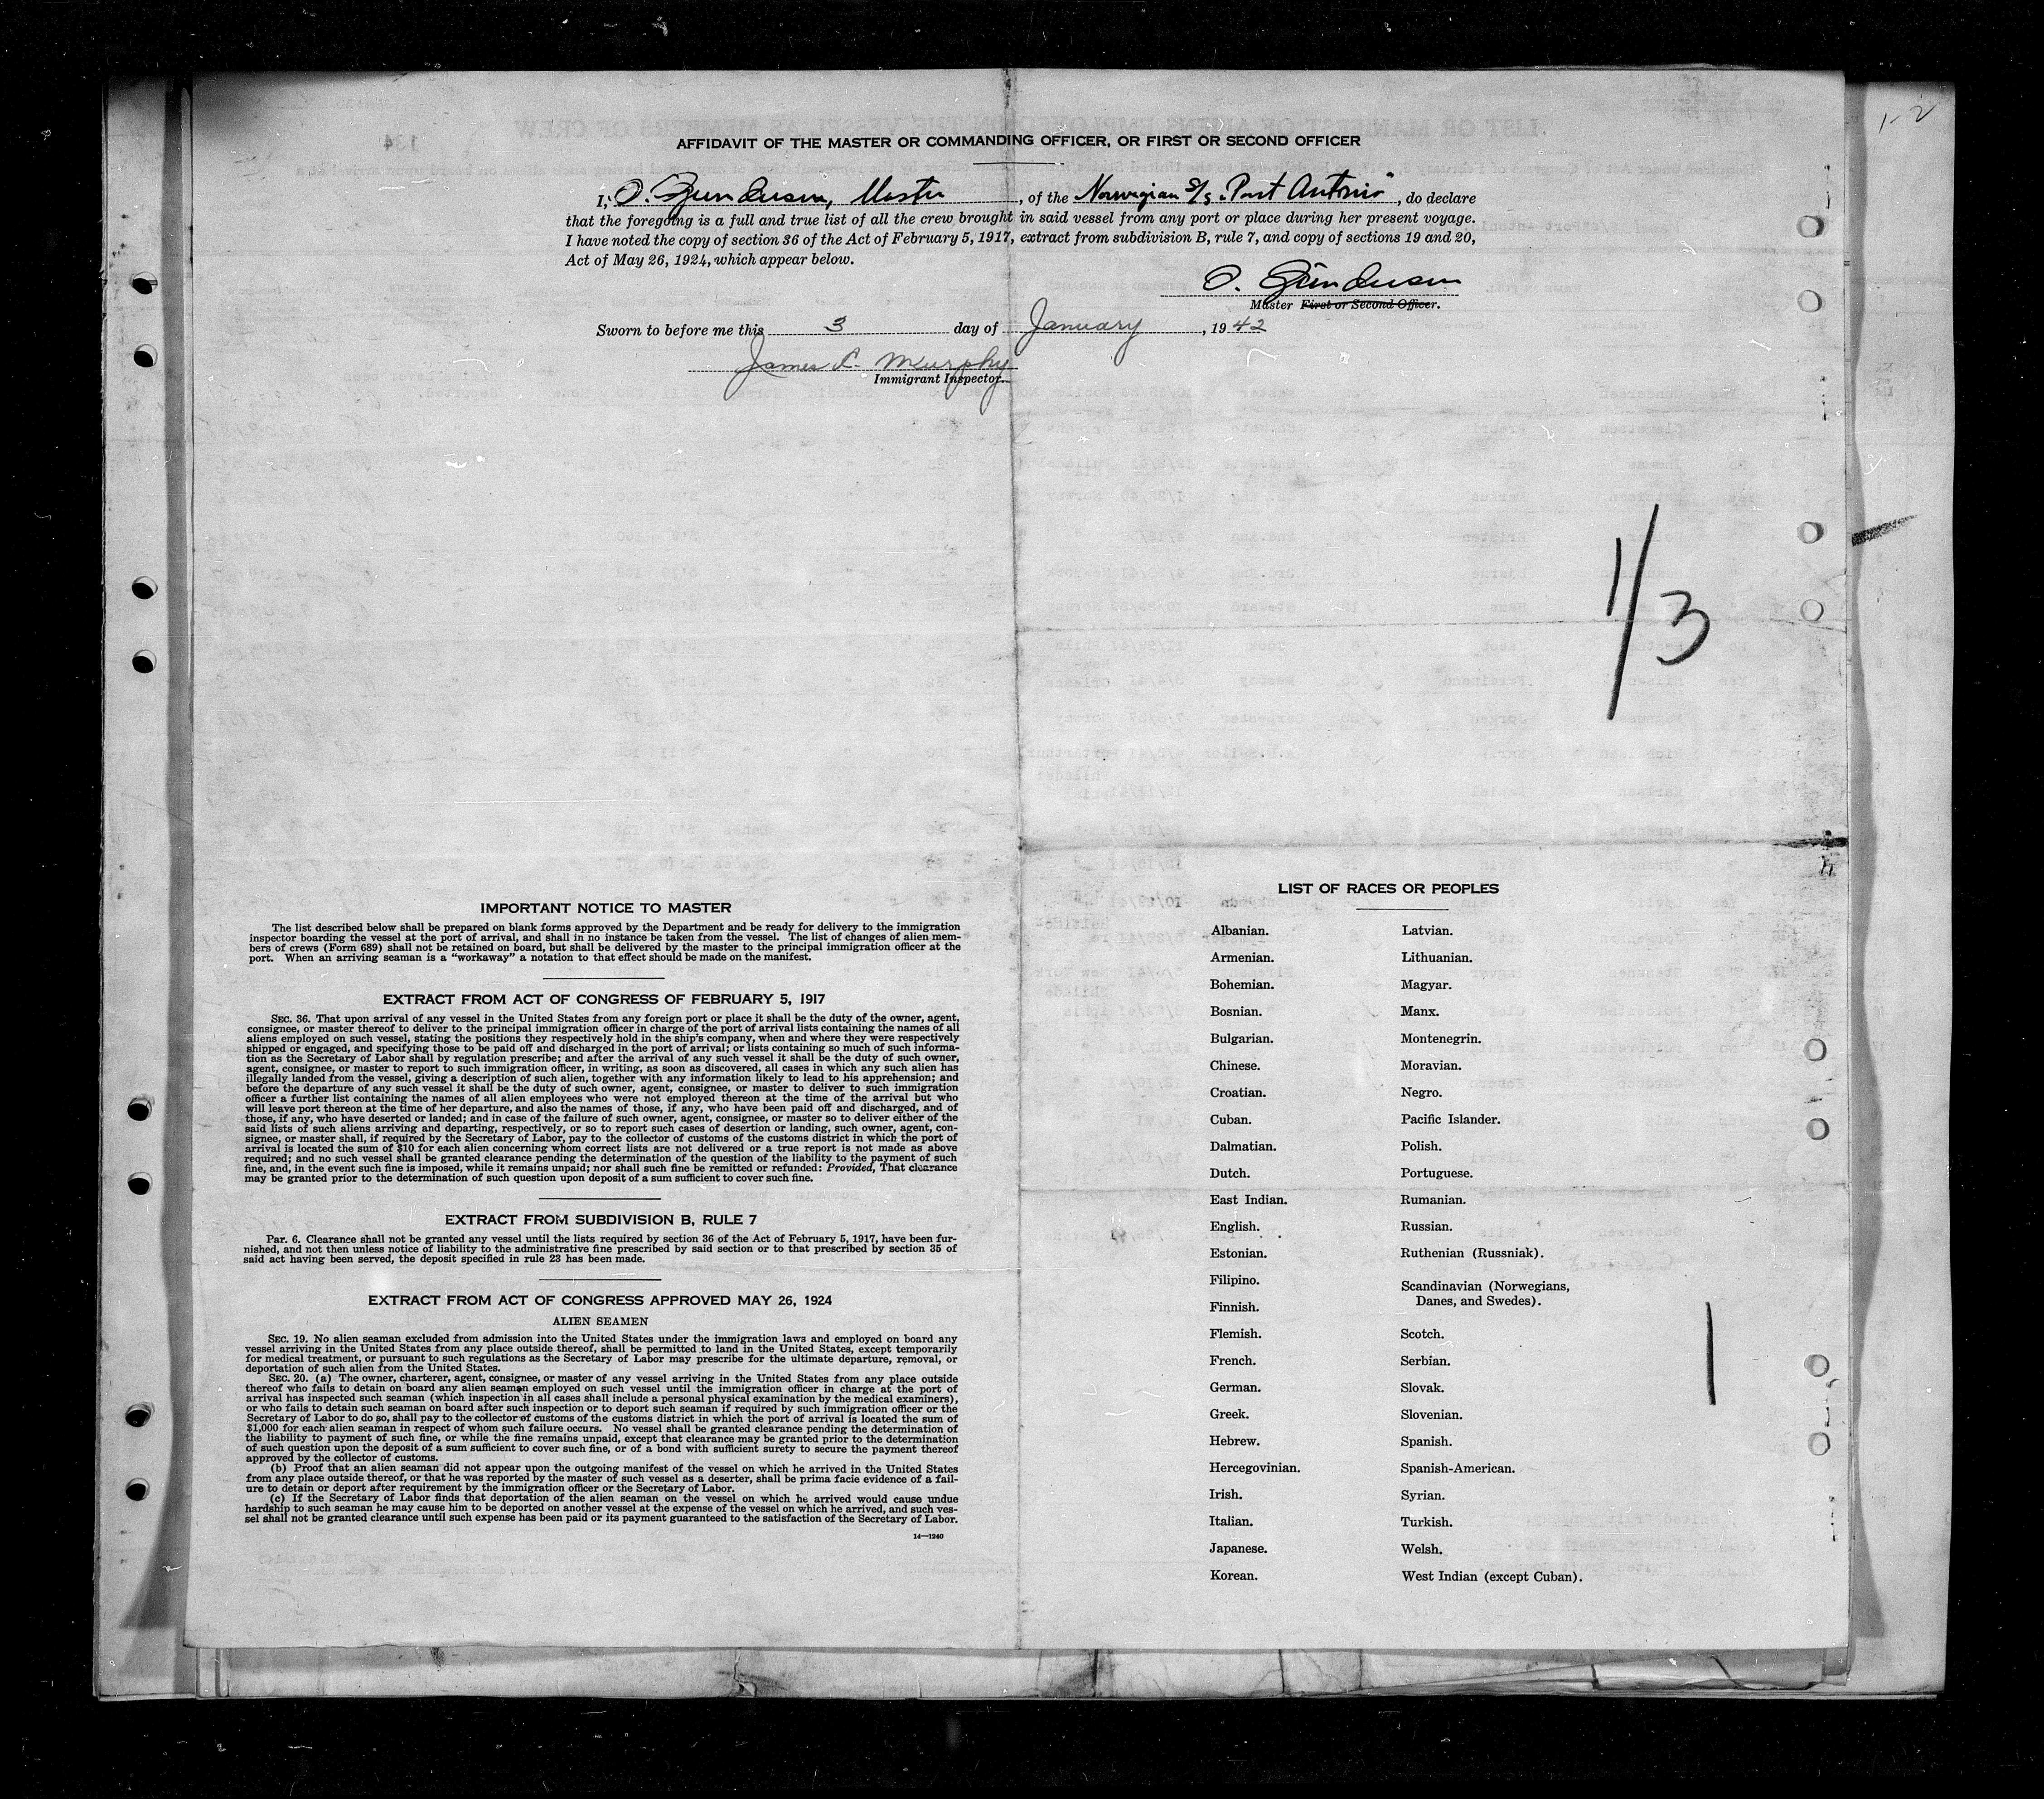 1-2
AFFIDAVIT OF THE MASTER OR COMMANDING OFFICER, OR FIRST OR SECOND OFFICER
I, O. Gundersen, Master, of the Norwegian S/S "Port Antonio", do declare
that the foregoing is a full and true list of all the crew brought in said vessel from any port or place during her present voyage.
I have noted the copy of section 36 of the Act of February 5, 1917, extract from subdivision B, rule 7, and copy of sections 19 and 20,
Act of May 26, 1924, which appear below.
O. Gundersen
Master First or Second Officer.
Sworn to before me this 3 day of January, 1942
James L. Murphy
Immigrant Inspector.
1/3
IMPORTANT NOTICE TO MASTER
The list described below shall be prepared on blank forms approved by the Department and be ready for delivery to the immigration
inspector boarding the vessel at the port of arrival, and shall in no instance be taken from the vessel. The list of changes of alien mem-
bers of crews (Form 689) shall not be retained on board, but shall be delivered by the master to the principal immigration officer at the
port. When an arriving seaman is a "workaway" a notation to that effect should be made on the manifest.
EXTRACT FROM ACT OF CONGRESS OF FEBRUARY 5, 1917
SEC. 36. That upon arrival of any vessel in the United States from any foreign port or place it shall be the duty of the owner, agent,
consignee, or master thereof to deliver to the principal immigration officer in charge of the port of arrival lists containing the names of all
aliens employed on such vessel, stating the positions they respectively hold in the ship's company, when and where they were respectively
shipped or engaged, and specifying those to be paid off and discharged in the port of arrival; or lists containing so much of such informa-
tion as the Secretary of Labor shall by regulation prescribe; and after the arrival of any such vessel it shall be the duty of such owner,
agent, consignee, or master to report to such immigration officer, in writing, as soon as discovered, all cases in which any such alien has
illegally landed from the vessel, giving a description of such alien, together with any information likely to lead to his apprehension; and
before the departure of any such vessel it shall be the duty of such owner, agent, consignee, or master to deliver to such immigration
officer a further list containing the names of all alien employees who were not employed thereon at the time of the arrival but who
will leave port thereon at the time of her departure, and also the names of those, if any, who have been paid off and discharged, and of
those, if any, who have deserted or landed; and in case of the failure of such owner, agent, consignee, or master so to deliver either of the
said lists of such aliens arriving and departing, respectively, or so to report such cases of desertion or landing, such owner, agent, con-
signee, or master shall, if required by the Secretary of Labor, pay to the collector of customs of the customs district in which the port of
arrival is located the sum of $10 for each alien concerning whom correct lists are not delivered or a true report is not made as above
required; and no such vessel shall be granted clearance pending the determination of the question of the liability to the payment of such
fine, and, in the event such fine is imposed, while it remains unpaid; nor shall such fine be remitted or refunded: Provided, That clearance
may be granted prior to the determination of such question upon deposit of a sum sufficient to cover such fine.
EXTRACT FROM SUBDIVISION B, RULE 7
Par. 6. Clearance shall not be granted any vessel until the lists required by section 36 of the Act of February 5, 1917, have been fur-
nished, and not then unless notice of liability to the administrative fine prescribed by said section or to that prescribed by section 35 of
said act having been served, the deposit specified in rule 23 has been made.
EXTRACT FROM ACT OF CONGRESS APPROVED MAY 26, 1924
ALIEN SEAMEN
SEC. 19. No alien seaman excluded from admission into the United States under the immigration laws and employed on board any
vessel arriving in the United States from any place outside thereof, shall be permitted to land in the United States, except temporarily
for medical treatment, or pursuant to such regulations as the Secretary of Labor may prescribe for the ultimate departure, removal, or
deportation of such alien from the United States.
SEC. 20. (a) The owner, charterer, agent, consignee, or master of any vessel arriving in the United States from any place outside
thereof who fails to detain on board any alien seaman employed on such vessel until the immigration officer in charge at the port of
arrival has inspected such seaman (which inspection in all cases shall include a personal physical examination by the medical examiners),
or who fails to detain such seaman on board after such inspection or to deport such seaman if required by such immigration officer or the
Secretary of Labor to do so, shall pay to the collector of customs of the customs district in which the port of arrival is located the sum of
$1,000 for each alien seaman in respect of whom such failure occurs. No vessel shall be granted clearance pending the determination of
the liability to payment of such fine, or while the fine remains unpaid, except that clearance may be granted prior to the determination
of such question upon the deposit of a sum sufficient to cover such fine, or of a bond with sufficient surety to secure the payment thereof
approved by the collector of customs.
(b) Proof that an alien seaman did not appear upon the outgoing manifest of the vessel on which he arrived in the United States
from any place outside thereof, or that he was reported by the master of such vessel as a deserter, shall be prima facie evidence of a fail-
ure to detain or deport after requirement by the immigration officer or the Secretary of Labor.
(c) If the Secretary of Labor finds that deportation of the alien seaman on the vessel on which he arrived would cause undue
hardship to such seaman he may cause him to be deported on another vessel at the expense of the vessel on which he arrived, and such ves-
sel shall not be granted clearance until such expense has been paid or its payment guaranteed to the satisfaction of the Secretary of Labor.
14—1240
LIST OF RACES OR PEOPLES
Albanian.
Armenian.
Bohemian.
Bosnian.
Bulgarian.
Chinese.
Croatian.
Cuban.
Dalmatian.
Dutch.
East Indian.
English.
Estonian.
Filipino.
Finnish.
Flemish.
French.
German.
Greek.
Hebrew.
Hercegovinian.
Irish.
Italian.
Japanese.
Korean.
Latvian.
Lithuanian.
Magyar.
Manx.
Montenegrin.
Moravian.
Negro.
Pacific Islander.
Polish.
Portuguese.
Rumanian.
Russian.
Ruthenian (Russniak).
Scandinavian (Norwegians,
Danes, and Swedes).
Scotch.
Serbian.
Slovak.
Slovenian.
Spanish.
Spanish-American.
Syrian.
Turkish.
Welsh.
West Indian (except Cuban).